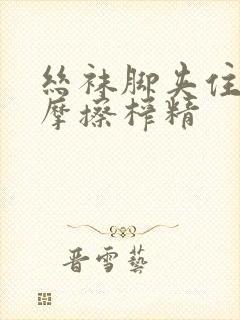 丝袜脚夹住
摩擦榨精
晋雪艺